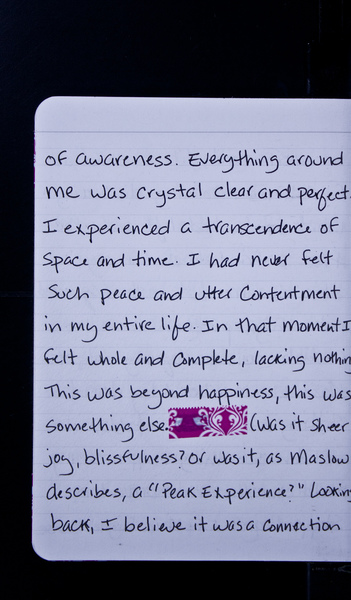 of awareness. Everything around
me was crystal clear and perfect.
I experienced a transcendence of
space and time. I had never felt
such peace and utter contentment
in my entire life. In that moment I
felt whole and complete, lacking nothin
This was beyond happiness, this was
something else. (Was it sheer
joy, blissfulness? Or was it, as Maslow
describes, a "Peak Experience?" Lookin
back, I believe it was a connection